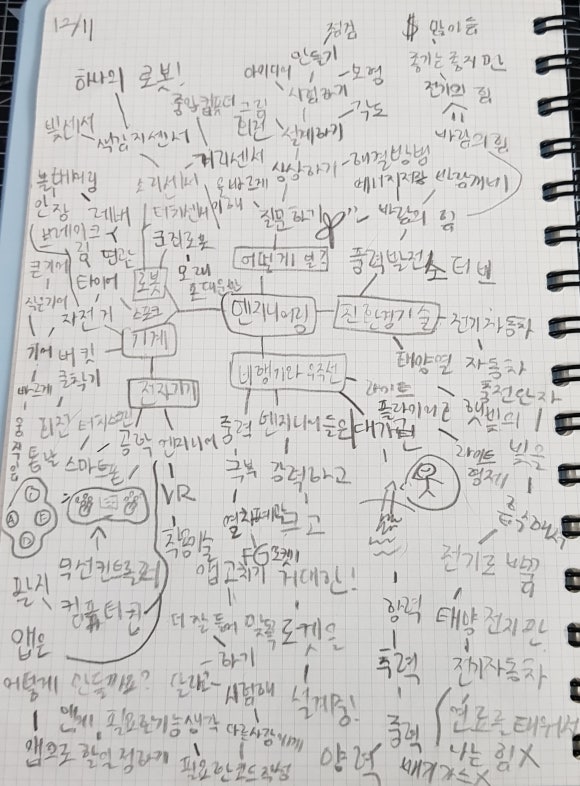 12/11
점검
$ 많이듬
만들기
하나의 로봇!
아이디어
시험하기
모형
전기의 힘
중앙컴퓨터
그림
각도
빛센서
색감지센서
설계하기
바람의 힘
거리센서
소리센서
상상하기
해결방법
올바르게
에너지저장
터치센서
이해
질문하기
바람의 힘
안장
레버
브레이크
군집로봇
어떻게 일
풍력발전소
터빈
큰기어
타이어
로봇
오래
작은기어
스포크
엔지니어링
친환경기술
전기자동차
자전거
기계
기어
버킷
굴착기
태양열
자동차
비행기와 우주선
충전한다
바르게
전자기기
라이트
플라이어
햇빛의
회전
중력
엔지니어들은
대기권
톱날
스마트폰
공학
엔지니어
극복
강력하고
라이트
형제
빛을
VR
크고
흡수해서
착용기술
FG로켓
무선컨트롤러
앱고치기
거대한!
전기로 바꿈
컴퓨터칩
항력
태양전지판
앱은
더 잘 돌아
맞춤
로켓을
하기
추력
전기자동차
어떻게 만들까요?
달라고
시험해
설계중!
앱에 필요한기능생각
다른사람에게
중력
연료를태워서
앱으로 할일 정하기
나는 힘X
필요한코드작성
양력
배기가스X